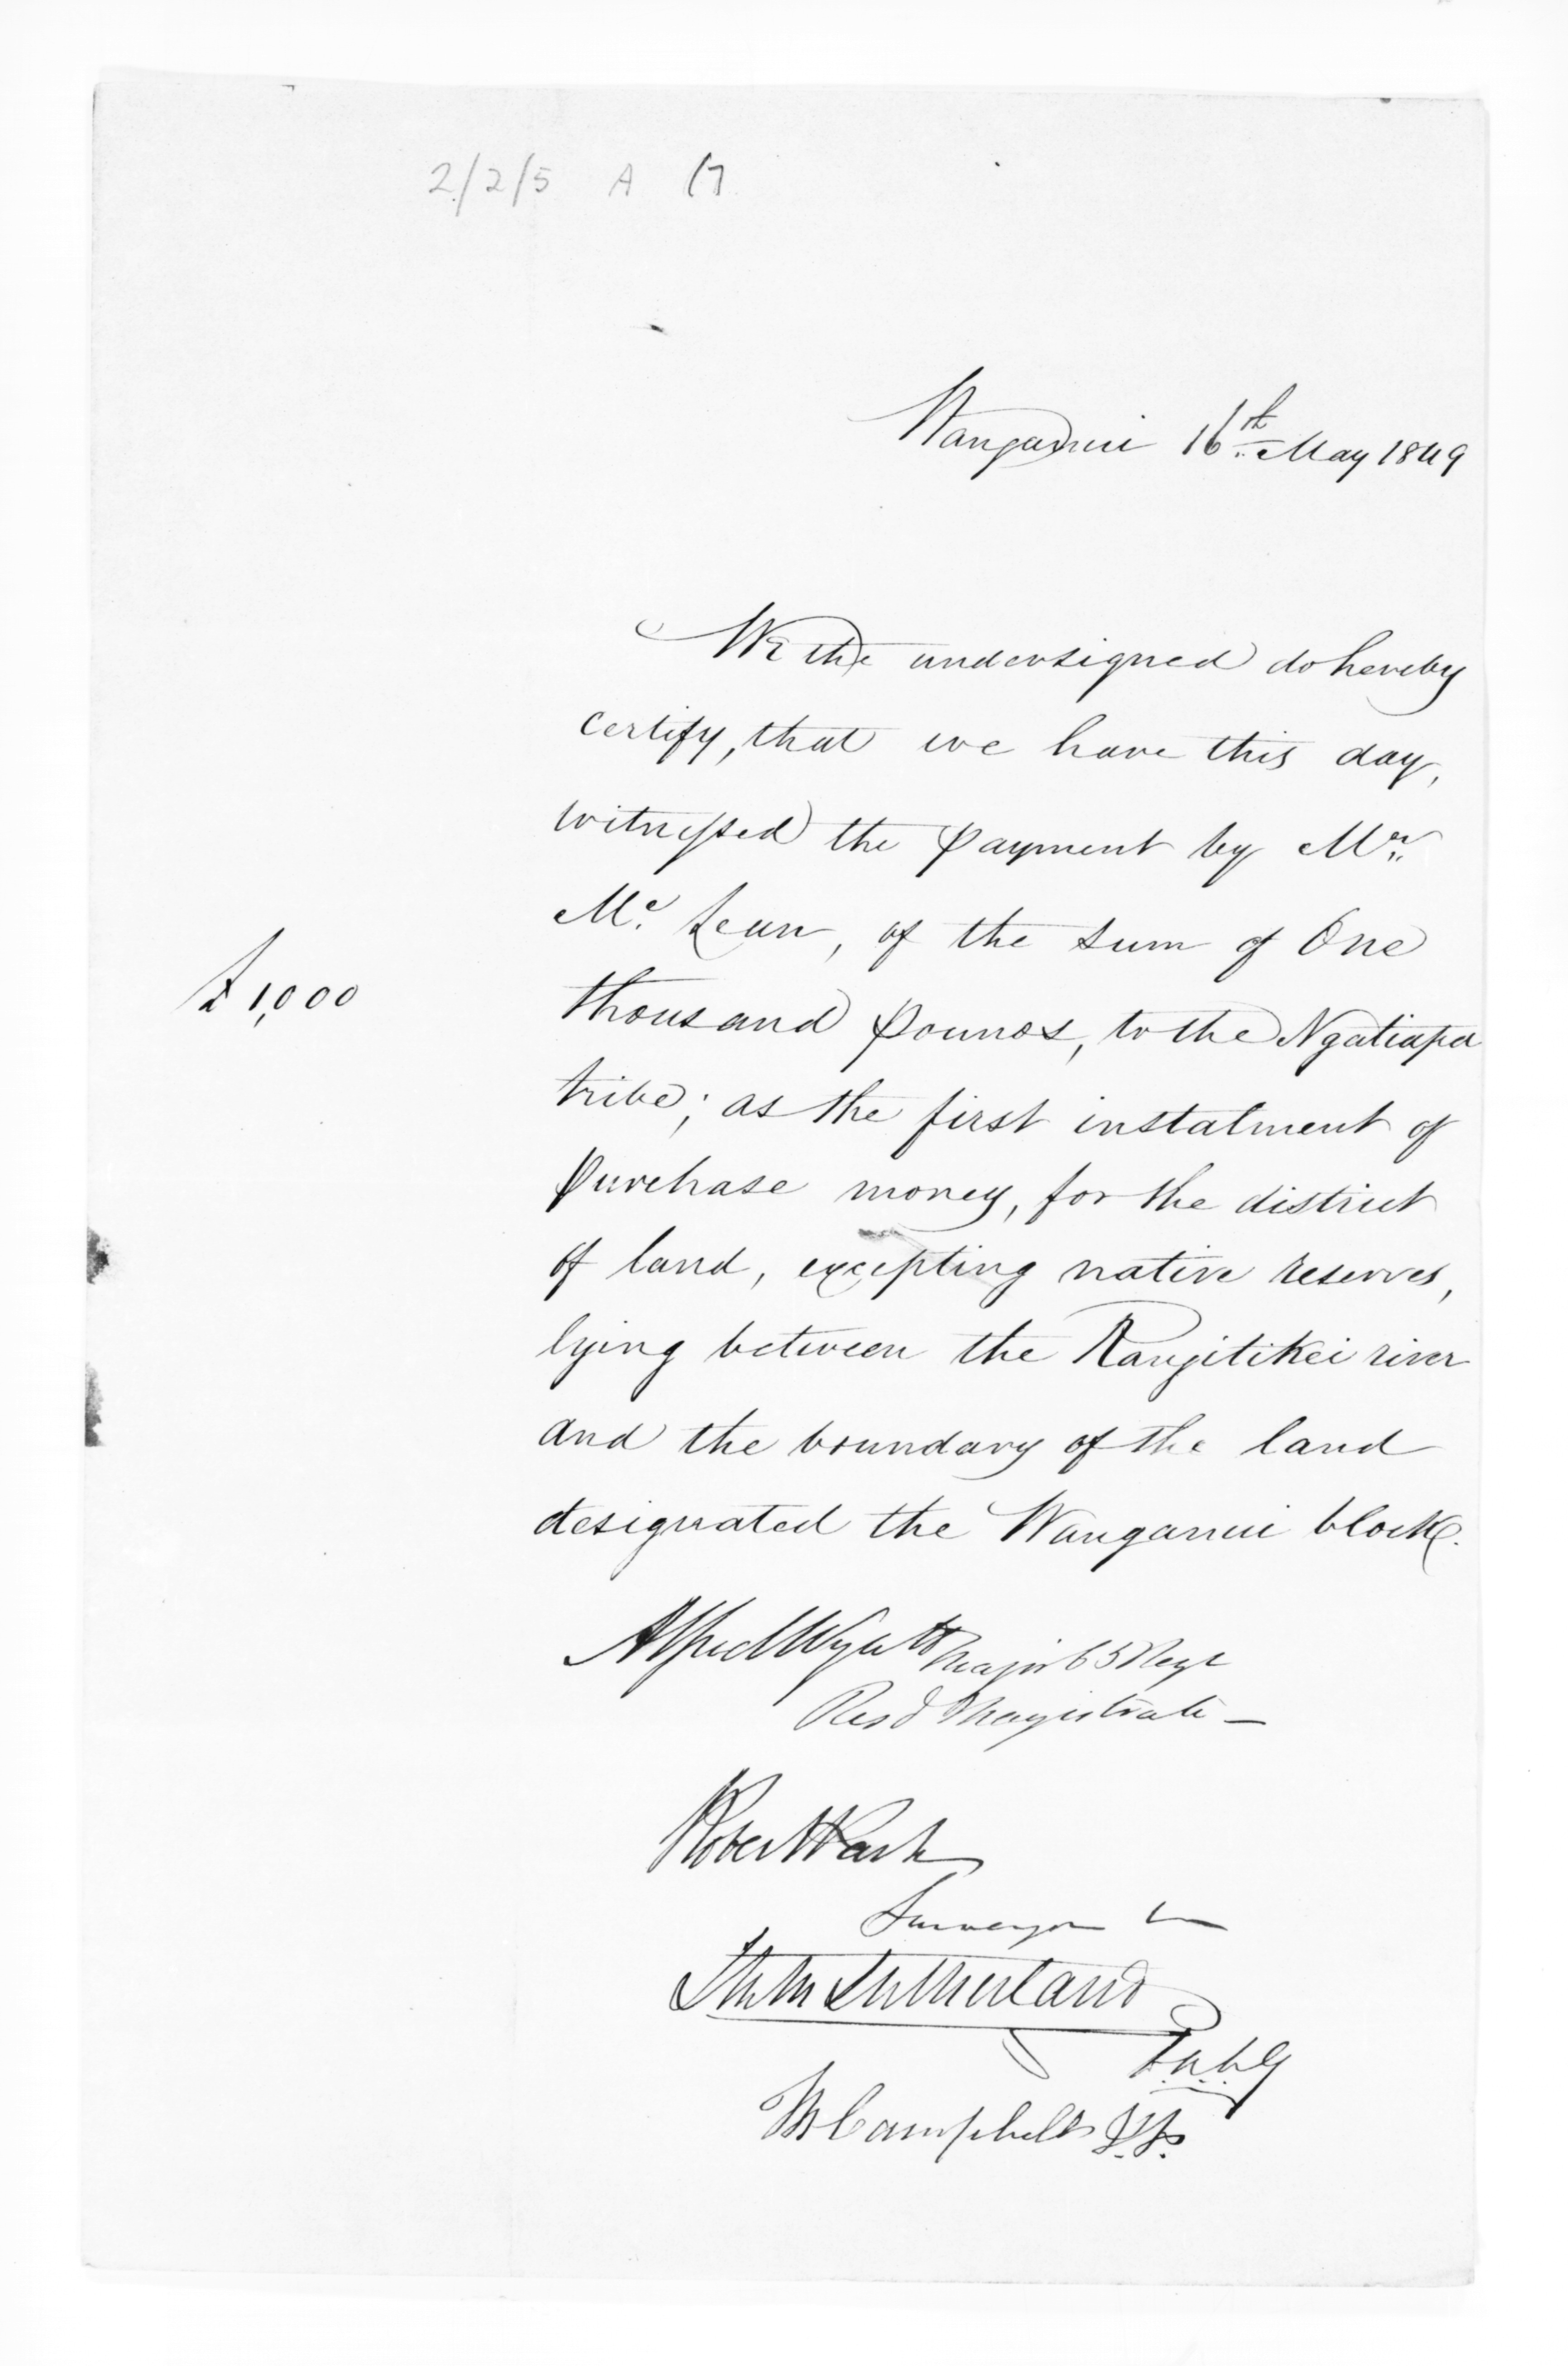 2/2/5 A 17
Wanganui 16th May 1849
We the undersigned do hereby
certify, that we have this day,
witnessed the payment by Mr
Mc Lean, of the sum of One
£1,000
thousand Pounds, to the Ngatiapa
tribe; as the first instalment of
purchase money, for the district
of land, excepting native reserves,
lying between the Rangitikei river
and the boundary of the land
designated the Wanganui block.
Alfred Wyatt Major 65 Regt
Resd Magistrate –
Robert Park
Surveyor
Sutherland
W Campbell J.P.